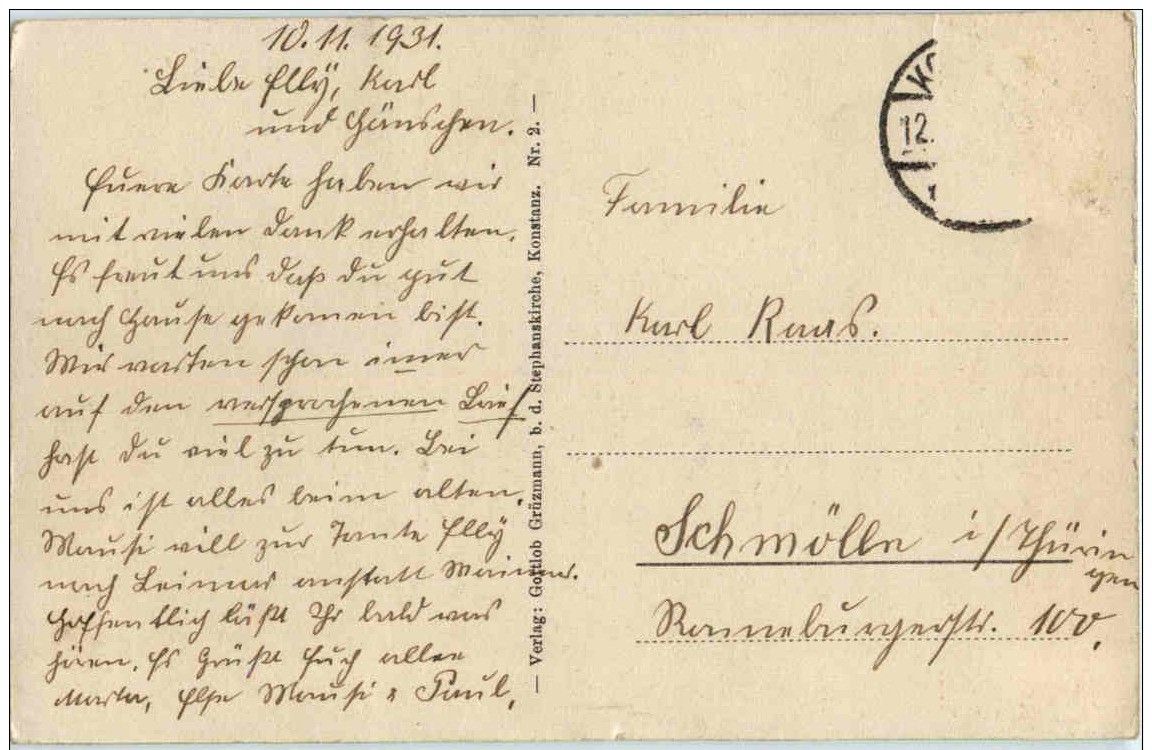 10.11.1931.
Liebe Elly, Karl
und Hänschen.
Euere Karte haben wir
mit vielen Dank erhalten.
Es freut uns daß du gut
nach Hause gekomen bist.
Wir warten schon imer
auf den versprochenen Brief
hast du viel zu tun. Bei
uns ist alles beim alten.
Mausi will zur Tante Elly
nach Leimar anstatt Waimar.
Hoffentlich läßt Ihr bald was
hören. Es Grüßt Euch allen
Marta, Else Mausi & Paul.
— Verlag: Gottlob Grüzmann, b. d. Stephanskirche, Konstanz. Nr. 2. —
12.
Familie
Karl Raas.
Schmölln i/Thürin
gen
Ronneburgerstr. 100.